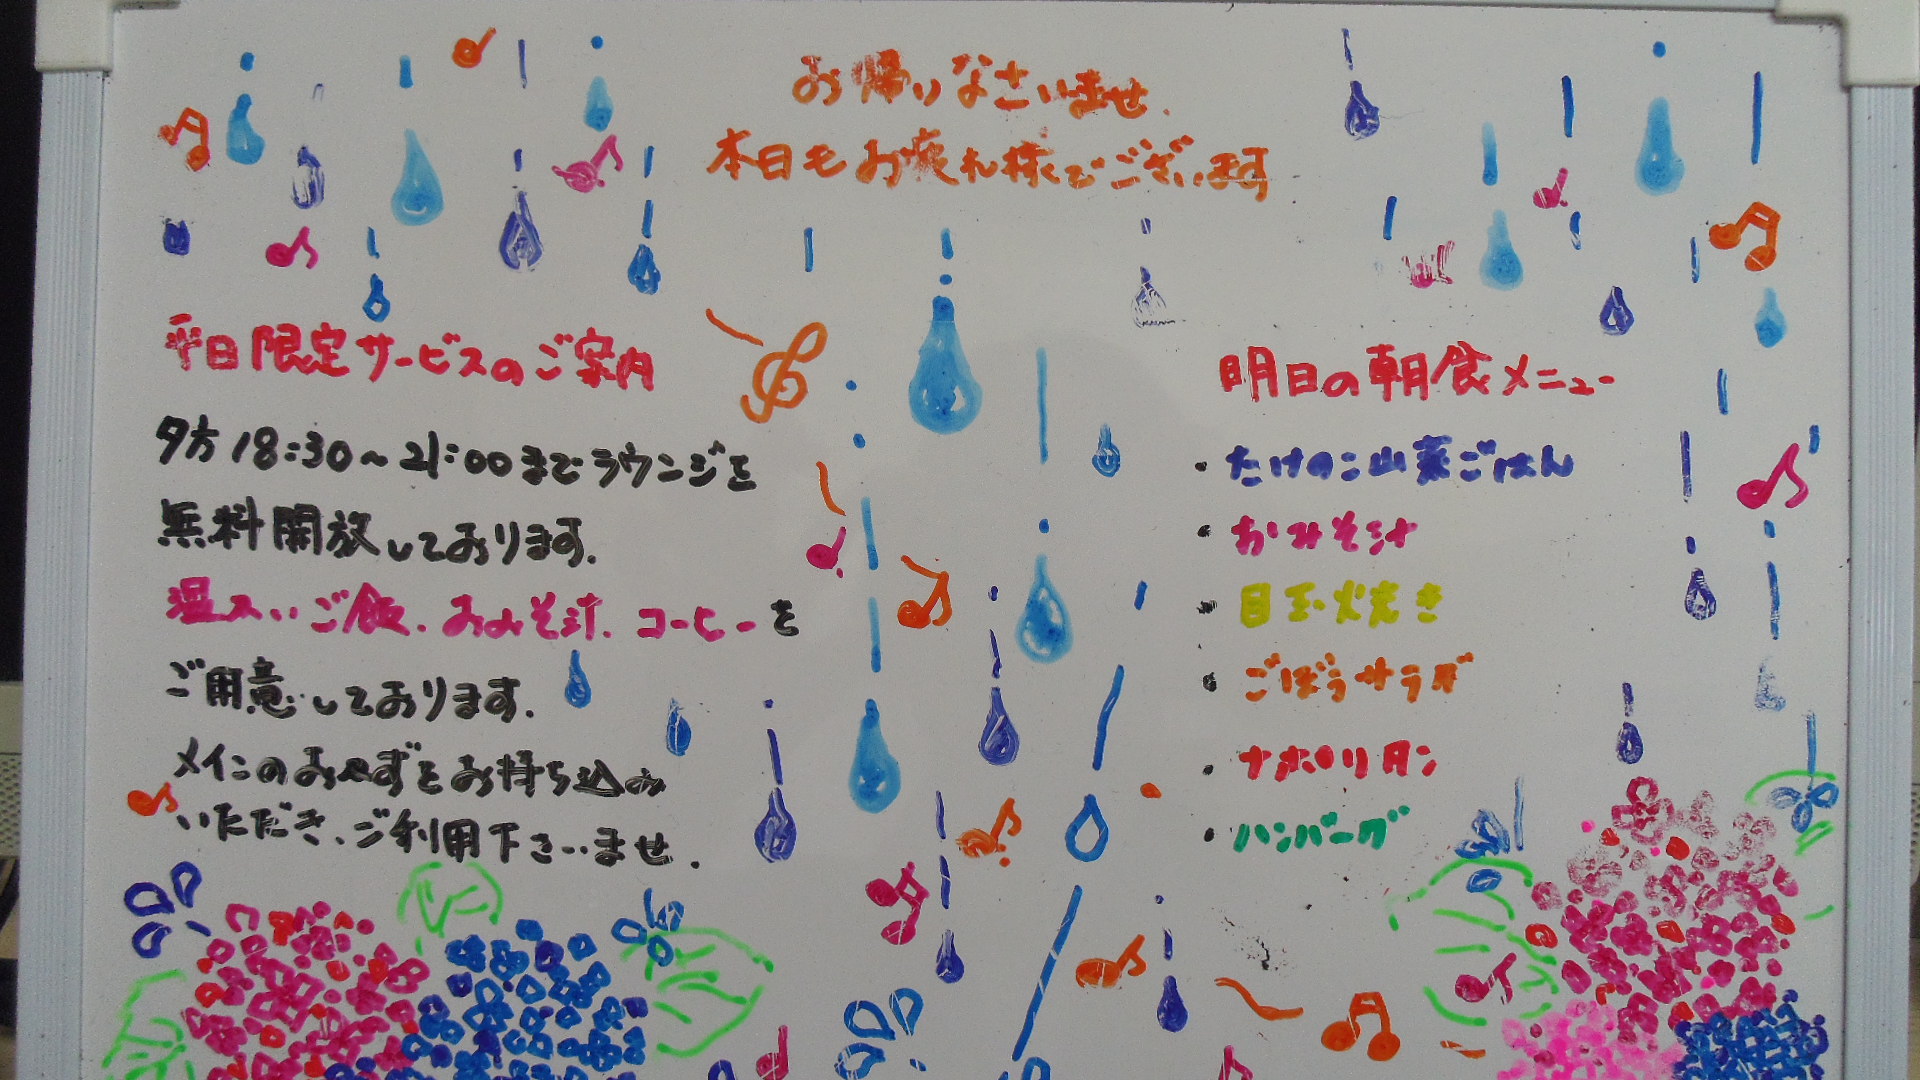 お帰りなさいませ.
本日もお疲れ様でございます
平日限定サービスのご案内
夕方18:30~21:00までラウンジを
無料開放しております.
温かいご飯.おみそ汁.コーヒーを
ご用意しております.
メインのおかずをお持ち込み
いただき、ご利用下さいませ.
明日の朝食メニュー
・たけのこ山菜ごはん
・おみそ汁
・目玉焼き
・ごぼうサラダ
・ナポリタン
・ハンバーグ